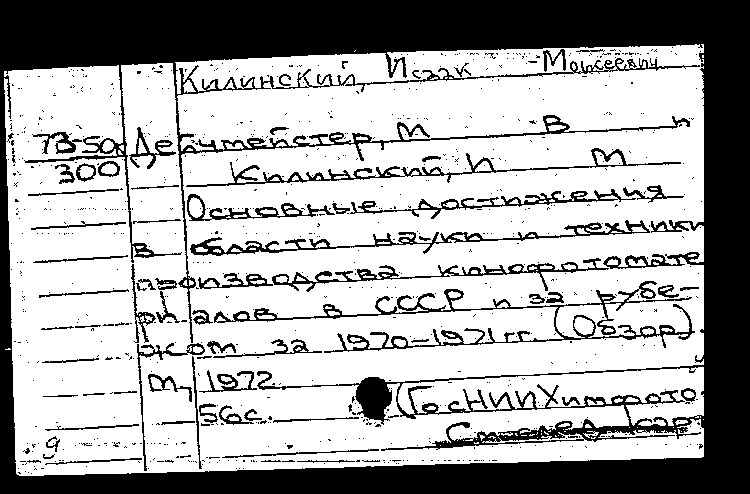 Килинский, Исаак Моисеевич
73-50к Дейчмейстер, М В и
300 Килинский, И М
Основные достижения
в области науки и техники
производства кинофотомате
риалов в СССР и за рубе-
жом за 1970-1971 гг. (Обзор).
М, 1972.
56с. (ГосНИИХимфото
9